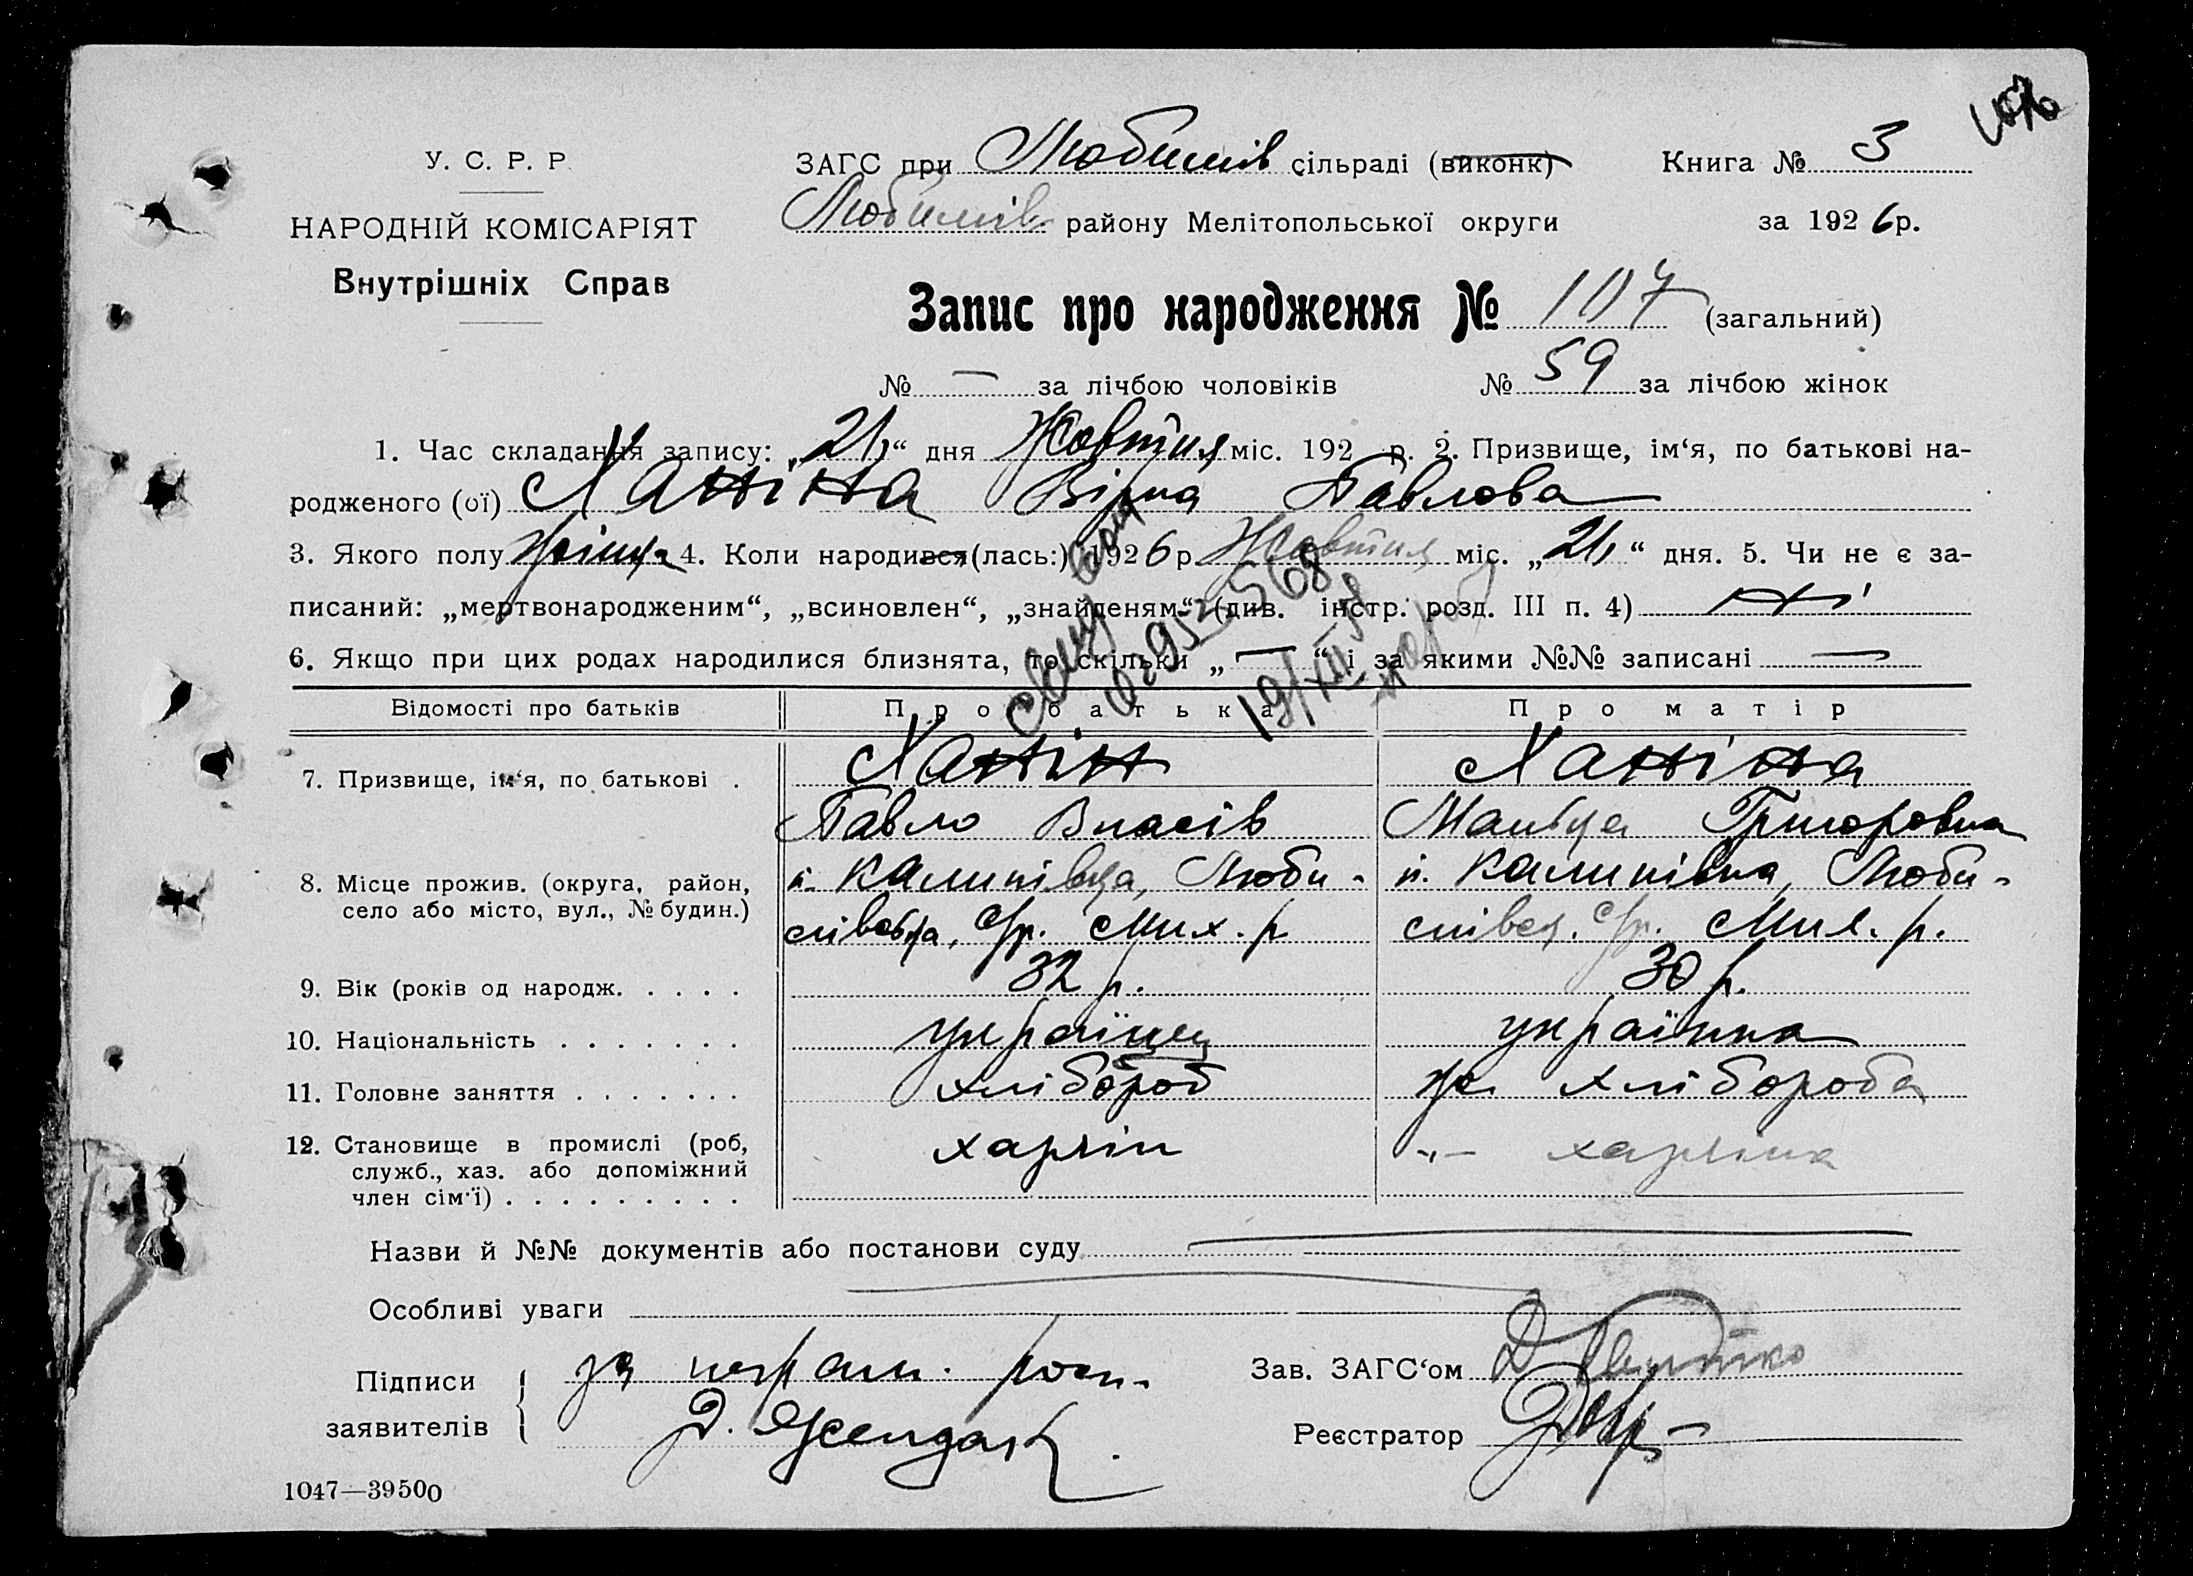 У. С. Р. Р.
НАРОДНІЙ КОМІСАРІЯТ
Внутрішніх Справ
ЗАГС при Любимів сільраді (виконк) Книга № 3
Любимів району Мелітопольської округи за 1926 р.
Запис про народження № 107 (загальний)
№ — за лічбою чоловіків № 59 за лічбою жінок
1. Час складання запису: „21“ дня Жовтня міс. 192 р. 2. Призвище, ім‘я, по батькові на-
родженого (ої) Ханіна Віра Павлова
3. Якого полу жіноч 4. Коли народився (лась:) 1926 р. Жовтня міс. „21“ дня. 5. Чи не є за-
писаний: „мертвонародженим“, „всиновлен“, „знайденям“ (див. інстр. розд. III п. 4) ні
6. Якщо при цих родах народилися близнята, то скільки „—“ і за якими №№ записані —
Відомості про батьків Про батька Про матір
7. Призвище, ім‘я, по батькові . Ханін Ханіна
Павло Власів Григоровна
8. Місце прожив. (округа, район, Калинівка, Люби- Калинівка, Люби-
село або місто, вул., № будин.) мівська, с/р. Мих. р мівськ. с/р. Мих. р.
9. Вік (років од народж. . . . . 32 р. 30 р.
10. Національність . . . . . . . українец українка
11. Головне заняття . . . . . . . хлібороб хлібороба
12. Становище в промислі (роб, хазяін -"- хазяіна
служб., хаз. або допоміжний
член сім‘ї) . . . . . . . . .
Назви й №№ документів або постанови суду
Особливі уваги
Підписи за неграм. росп.
заявителів Д.
Зав. ЗАГС‘ом Д.
Реєстратор
1047—39500